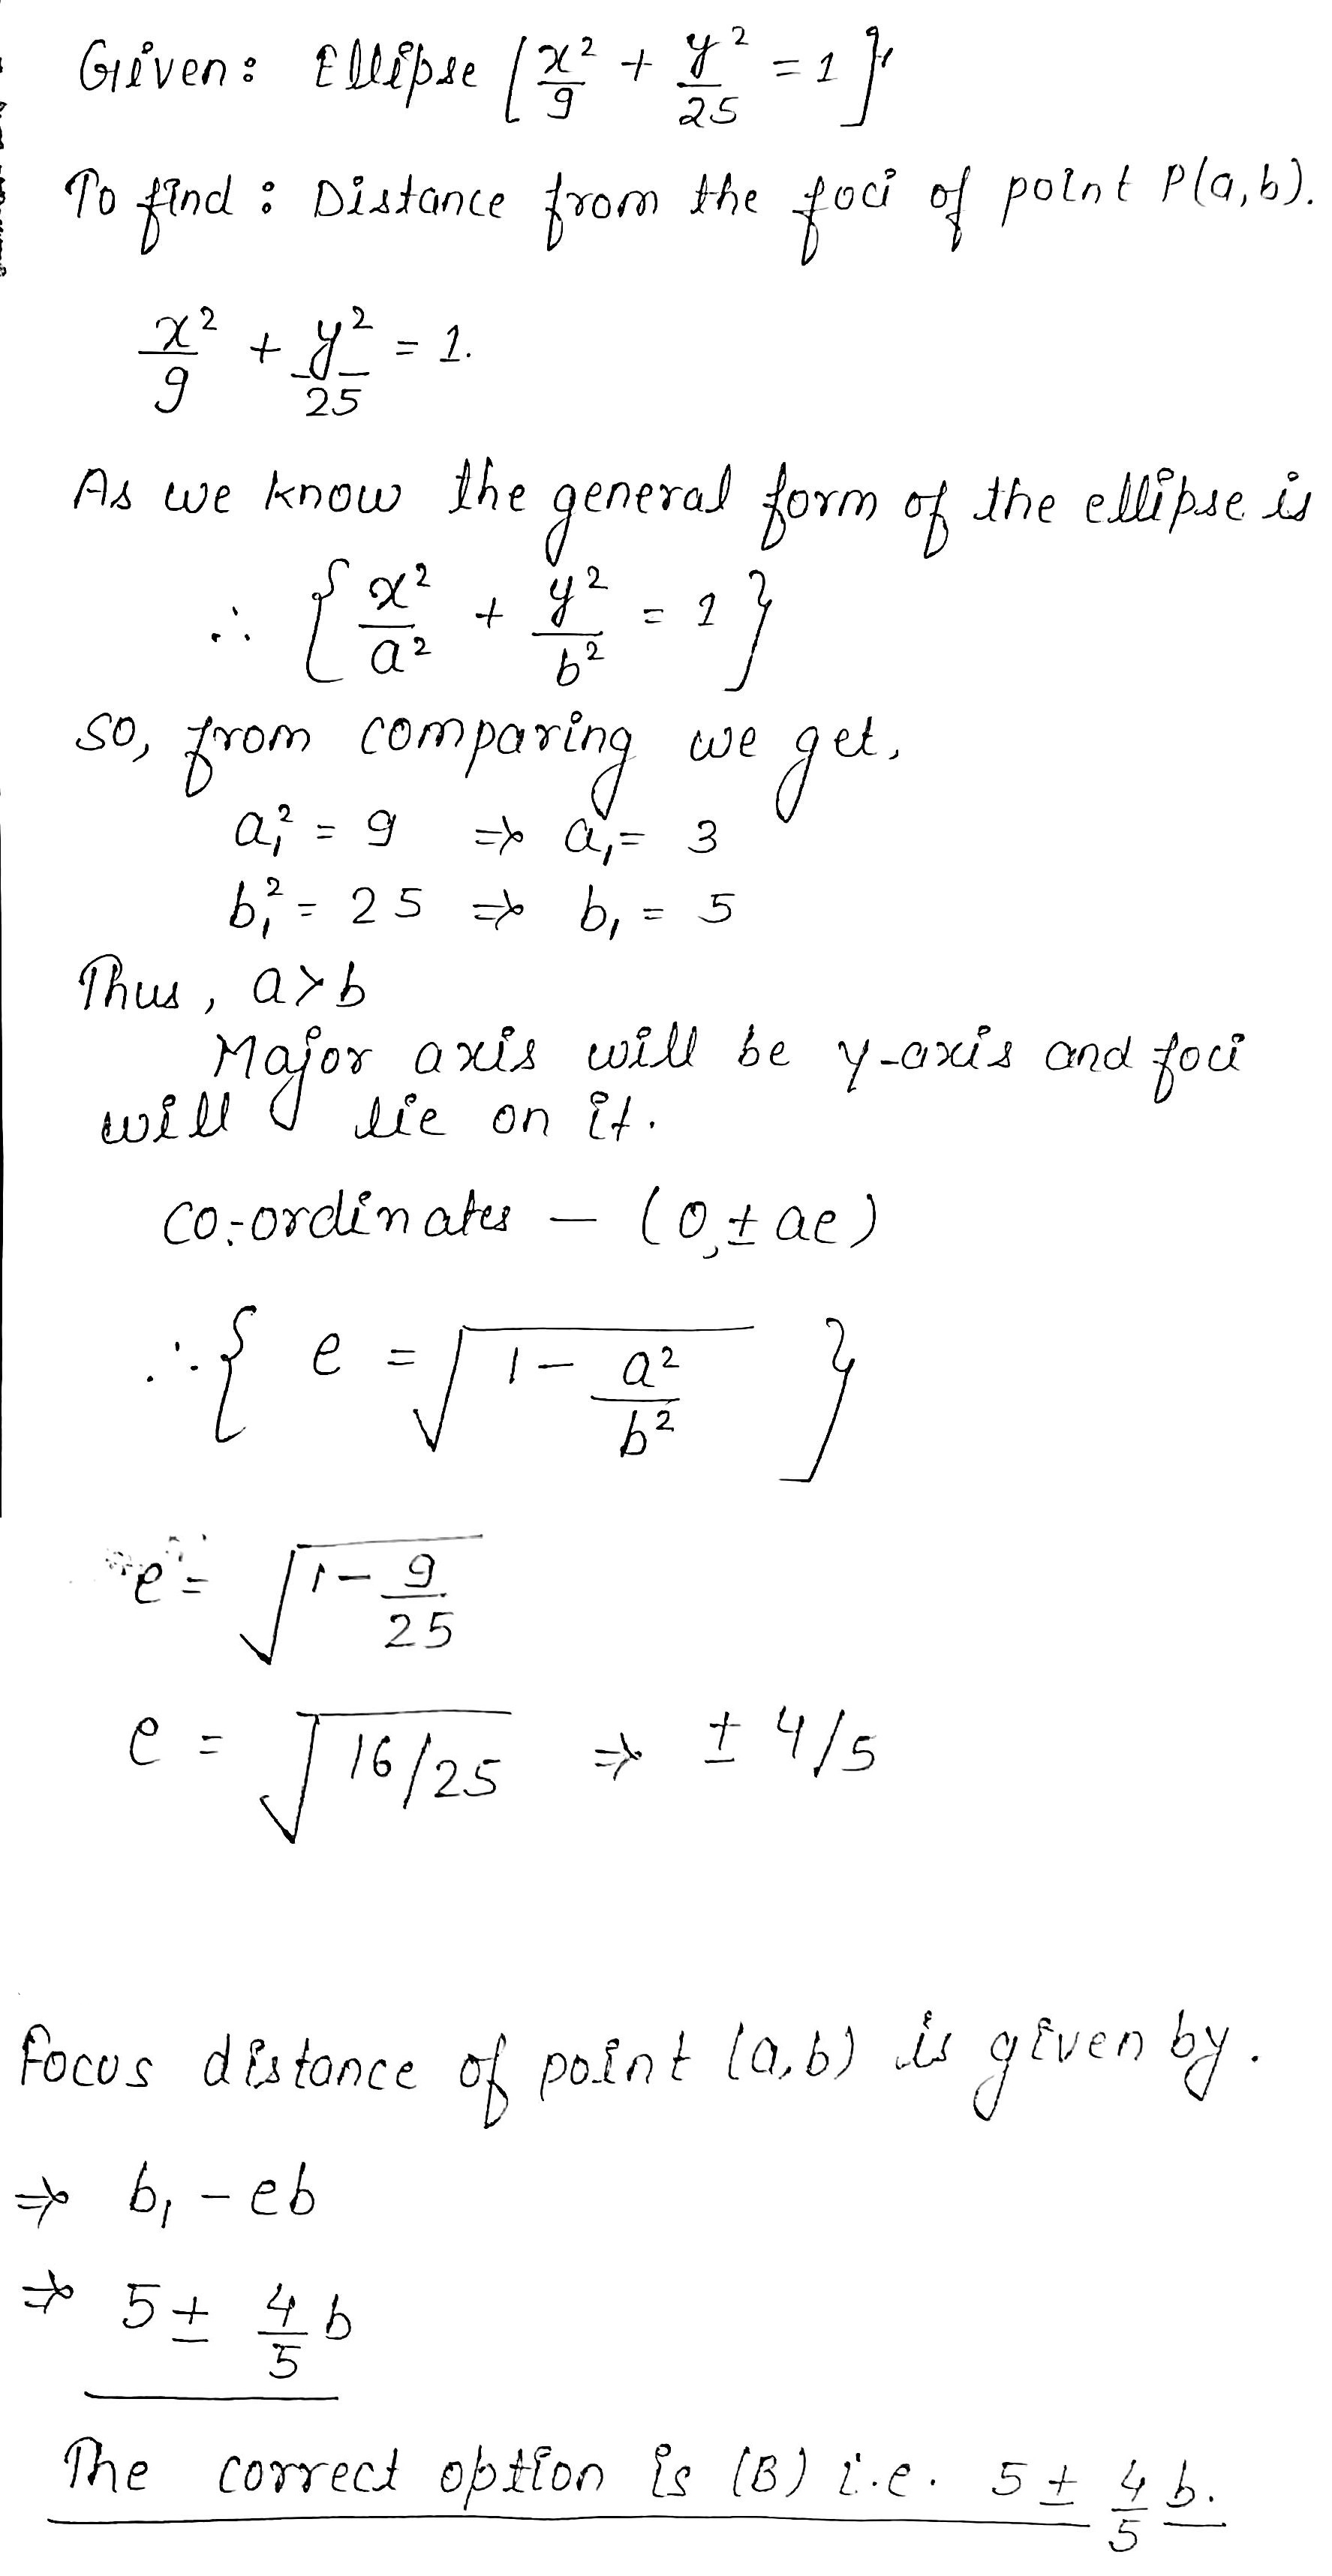 Given: Ellipse [x²/9 + y²/25 = 1}
To find: Distance from the foci of point P(a,b).
x²/9 + y²/25 = 1.
As we know the general form of the ellipse is
∴ {x²/a² + y²/b² = 1}
so, from comparing we get,
a₁² = 9 ⇒ a₁ = 3
b₁² = 25 ⇒ b₁ = 5
Thus, a>b
Major axis will be y-axis and foci
will lie on it.
co-ordinates — (0,±ae)
∴ { e = √(1 - a²/b²) }
e = √(1 - 9/25)
e = √(16/25) ⇒ ± 4/5
Focus distance of point (a,b) is given by.
⇒ b₁ - eb
⇒ 5 ± 4/5 b
The correct option is (B) i.e. 5 ± 4/5 b.